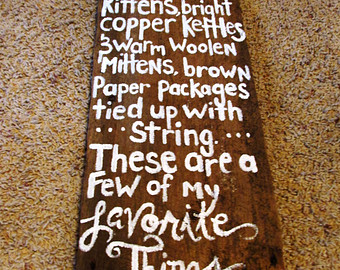 Kittens, bright
copper Kettles
3 warm woolen
Mittens, brown
Paper Packages
tied up with
...String...
These are a
Few of my
favorite
Things